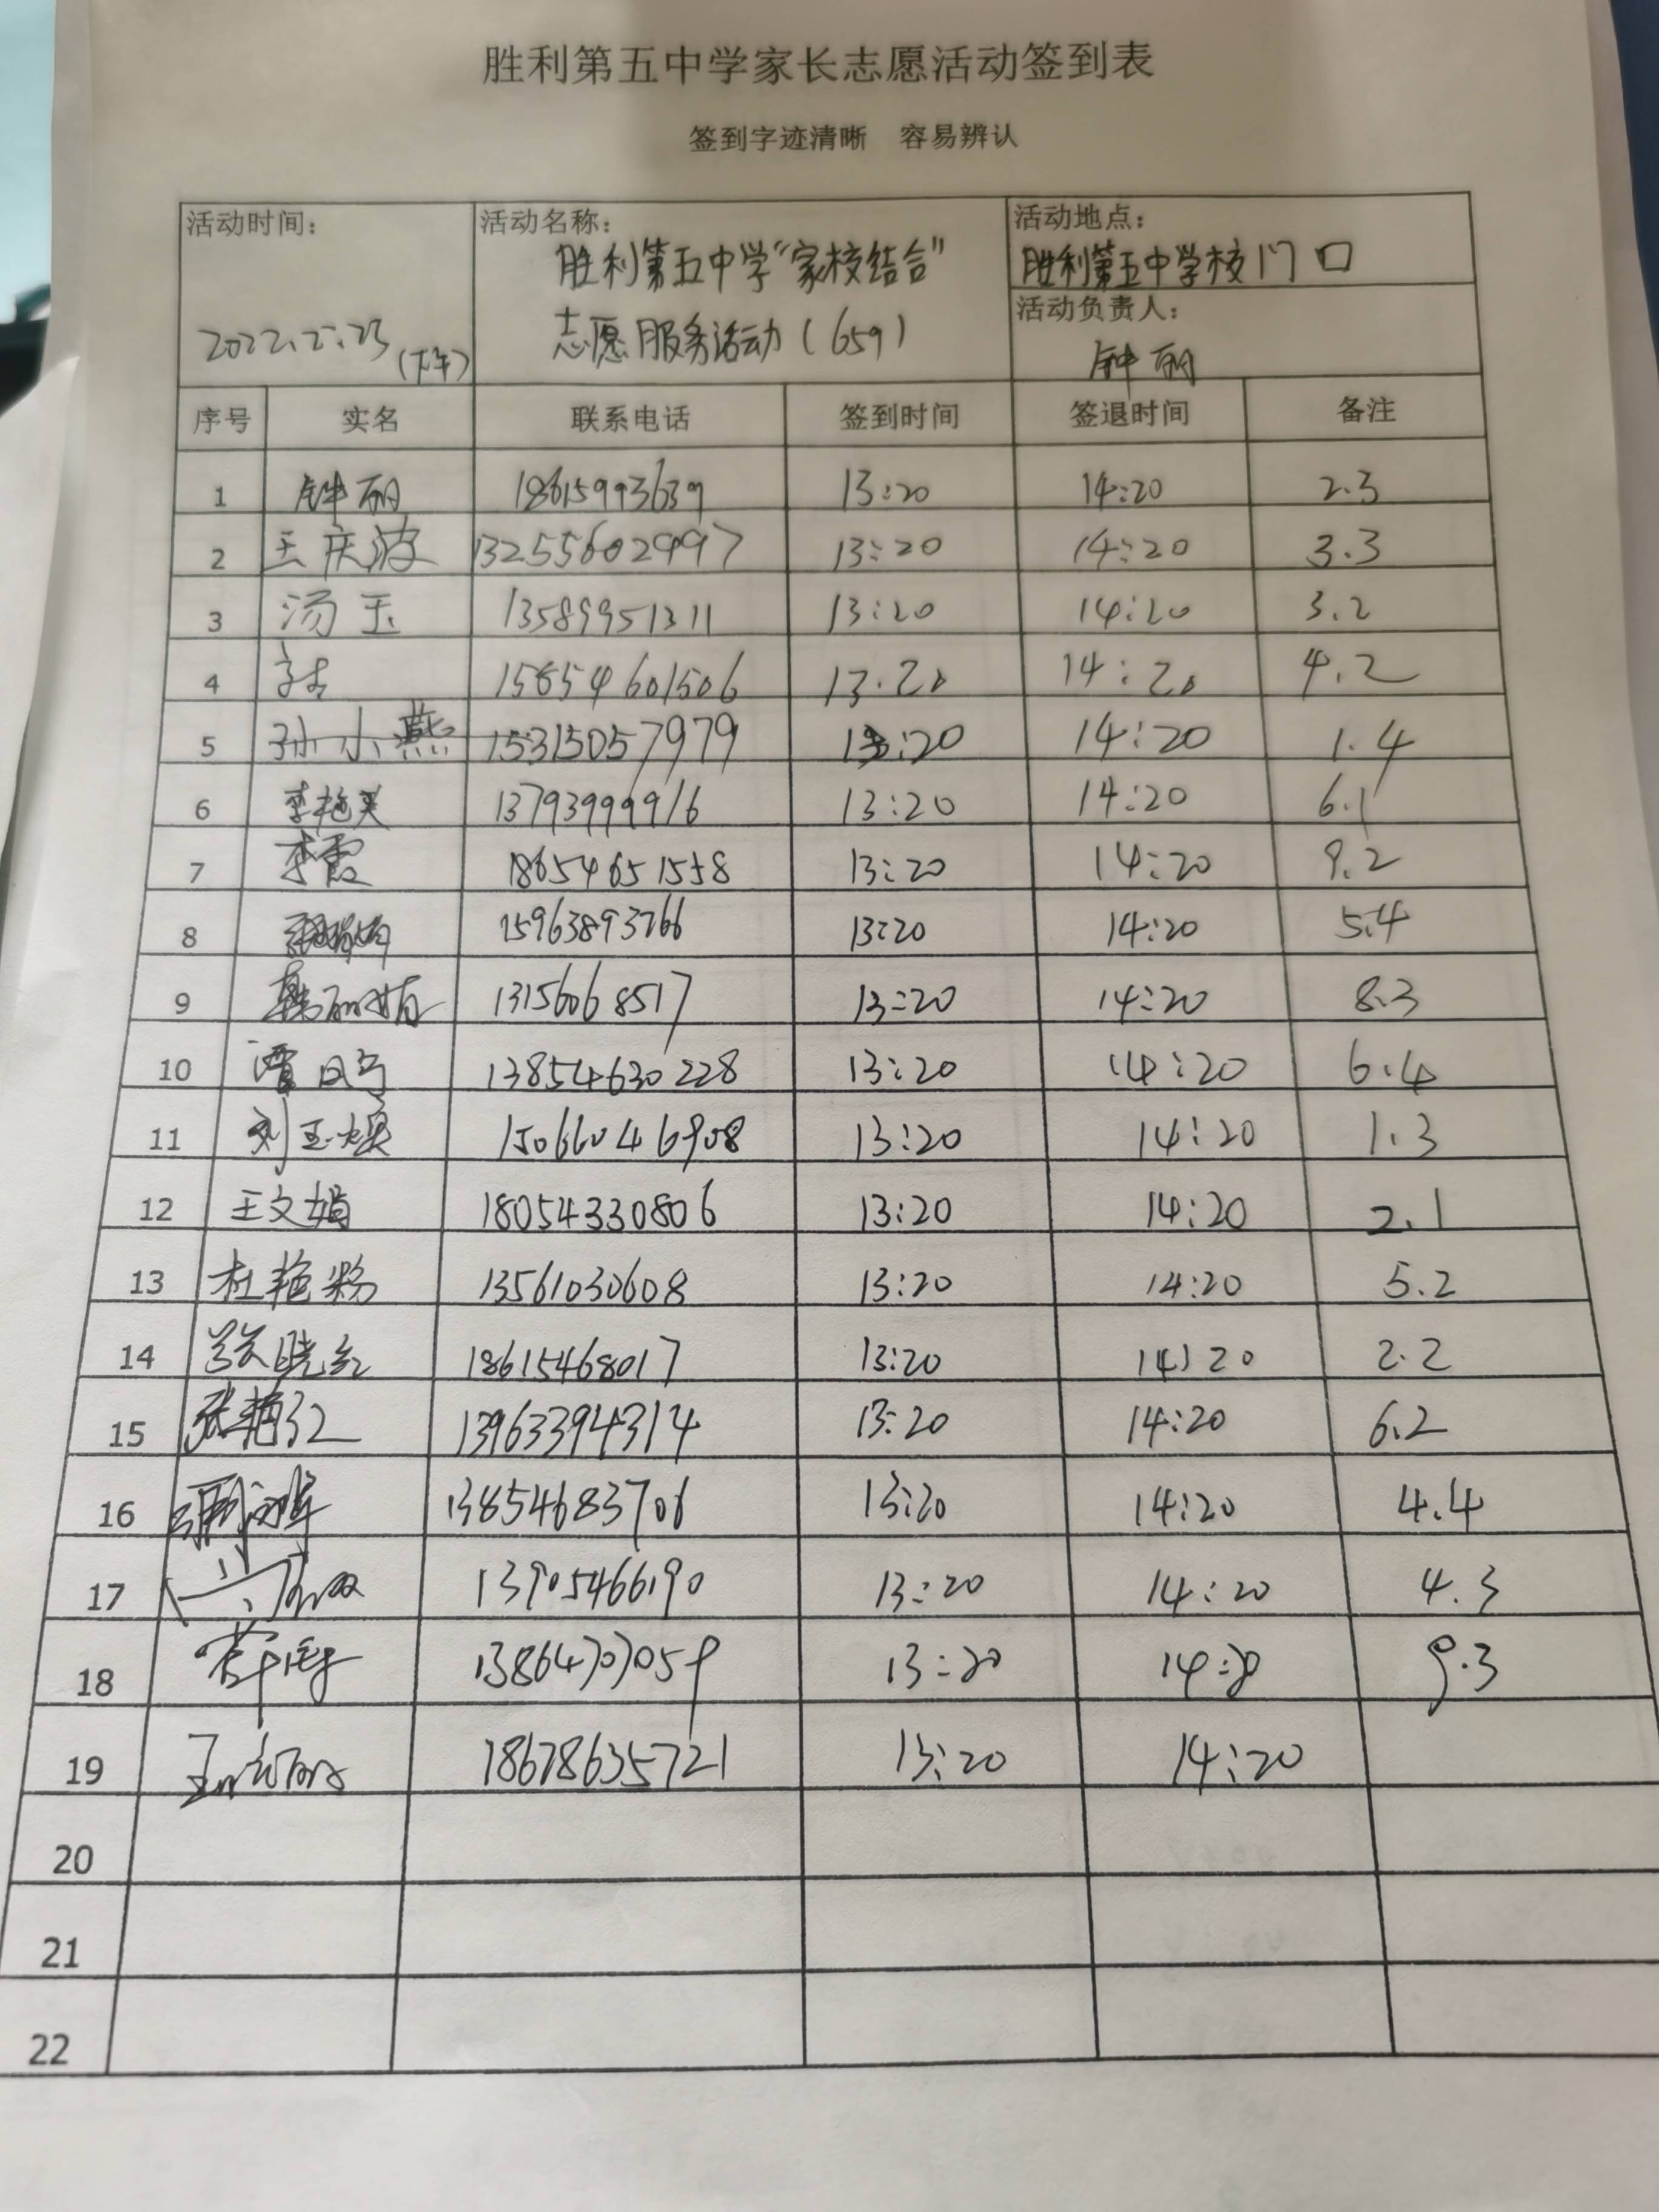 胜利第五中学家长志愿活动签到表
签到字迹清晰 容易辨认
活动时间: 活动名称: 活动地点:
胜利第五中学“家校结合” 胜利第五中学校门口
活动负责人:
2022.2.23 (下午) 志愿服务活动(659) 钟丽
序号 实名 联系电话 签到时间 签退时间 备注
1 钟丽 18615993639 13:20 14:20 2.3
2 王庆波 13255602997 13:20 14:20 3.3
3 汤玉 13589951311 13:20 14:20 3.2
4 15854601506 13.20 14:20 4.2
5 孙小燕 15315057979 13:20 14:20 1.4
6 李艳美 13793999916 13:20 14:20 6.1
7 李霞 18654651558 13:20 14:20 9.2
8 15963893766 13:20 14:20 5.4
9 13156068517 13:20 14:20 8.3
10 13854630228 13:20 14:20 6.4
11 刘玉焕 15066046908 13:20 14:20 1.3
12 王文娟 18054330806 13:20 14:20 2.1
13 杜艳粉 13561030608 13:20 14:20 5.2
14 18615468017 13:20 14:20 2.2
15 张艳红 13963394314 13:20 14:20 6.2
16 13854683706 13:20 14:20 4.4
17 13905466190 13:20 14:20 4.3
18 13864707059 13:20 14:20 9.3
19 18678635721 13:20 14:20
20
21
22